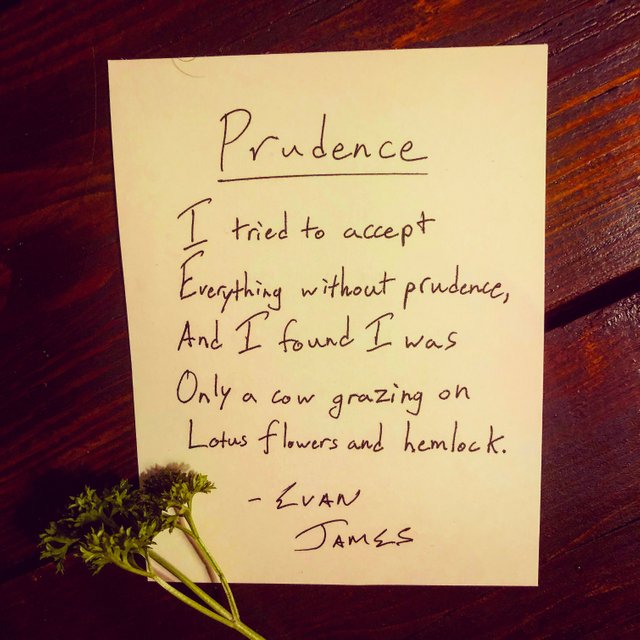 Prudence
I tried to accept
Everything without prudence,
And I found I was
Only a cow grazing on
Lotus flowers and hemlock.
- EVAN
JAMES